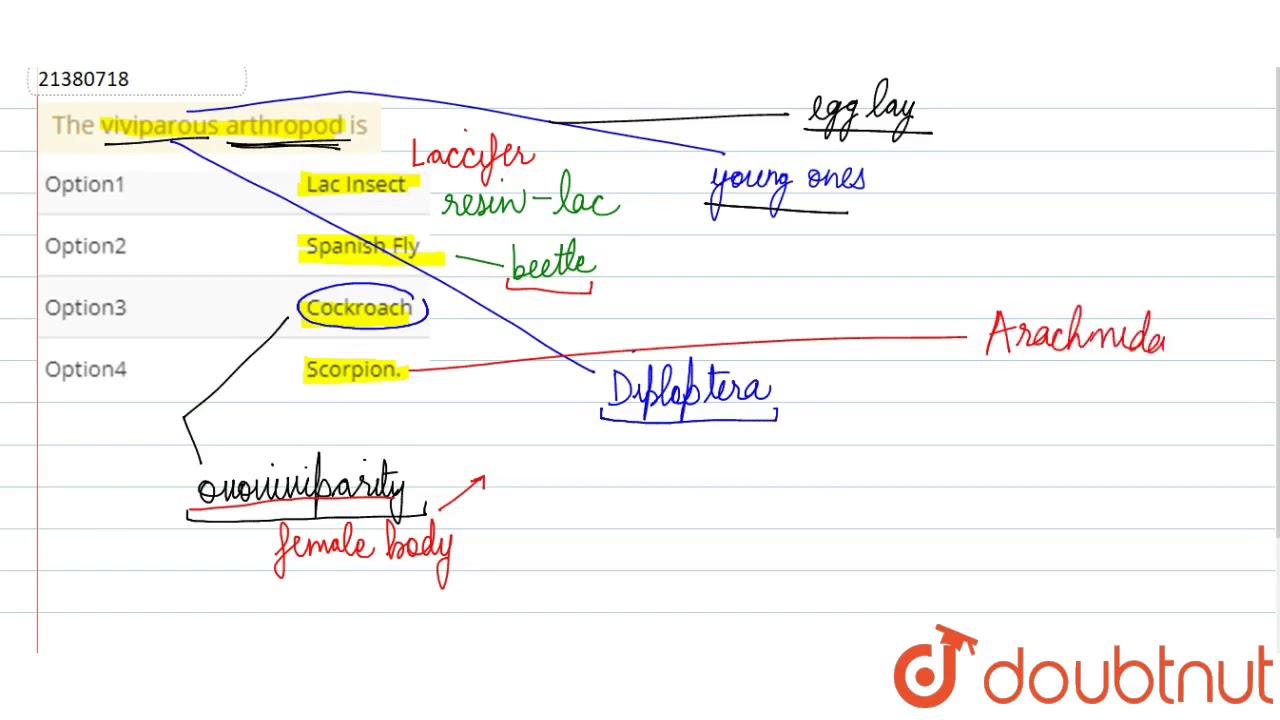 21380718
egg lay
The viviparous arthropod is
Laccifer
Option1 Lac Insect
young ones
resin-lac
Option2 Spanish Fly
beetle
Option3 Cockroach
Arachnida
Option4 Scorpion.
Diploptera
ovoviviparity
female body
doubtnut